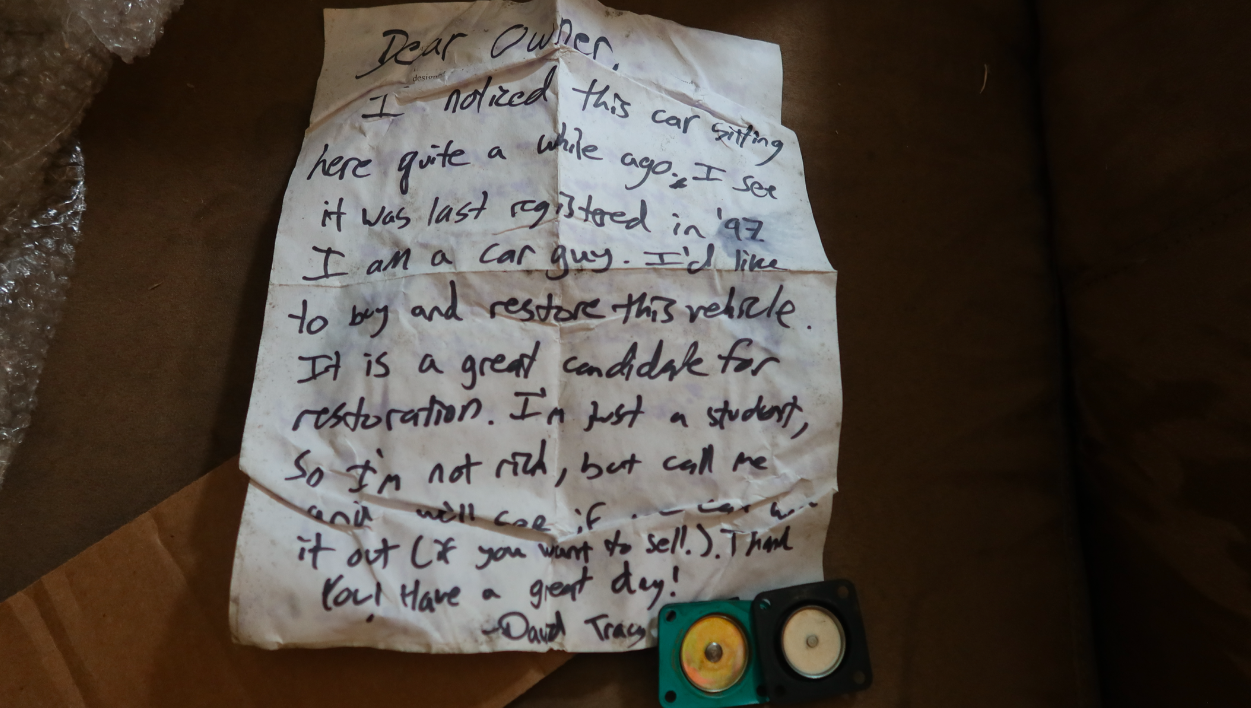 Dear Owner,
I noticed this car sitting
here quite a while ago. I see
it was last registered in '97
I am a car guy. I'd like
to buy and restore this vehicle.
It is a great candidate for
restoration. I'm just a student,
So I'm not rich, but call me
and we'll see if
it out (if you want to sell.). Thank
You! Have a great day!
-David Tracy